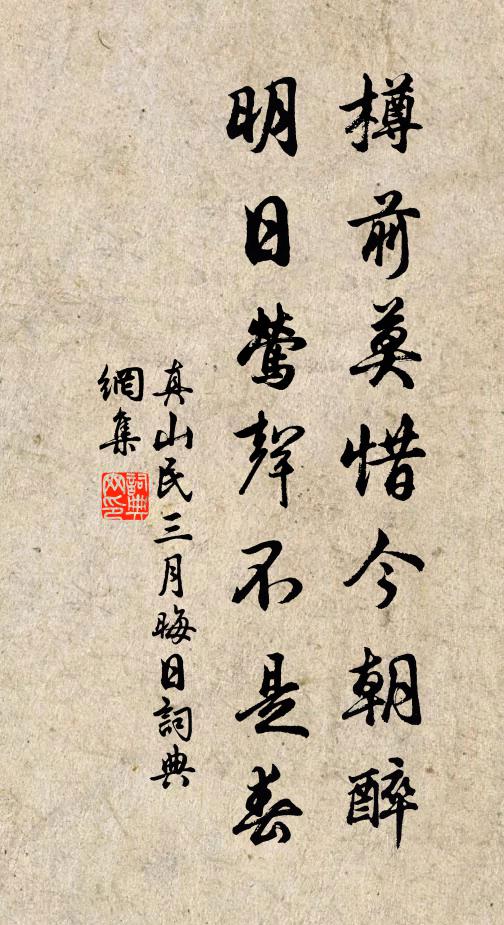 樽前莫惜今朝醉
明日鶯聲不是春
真山民三月晦日詞典
網集
詞典
网印